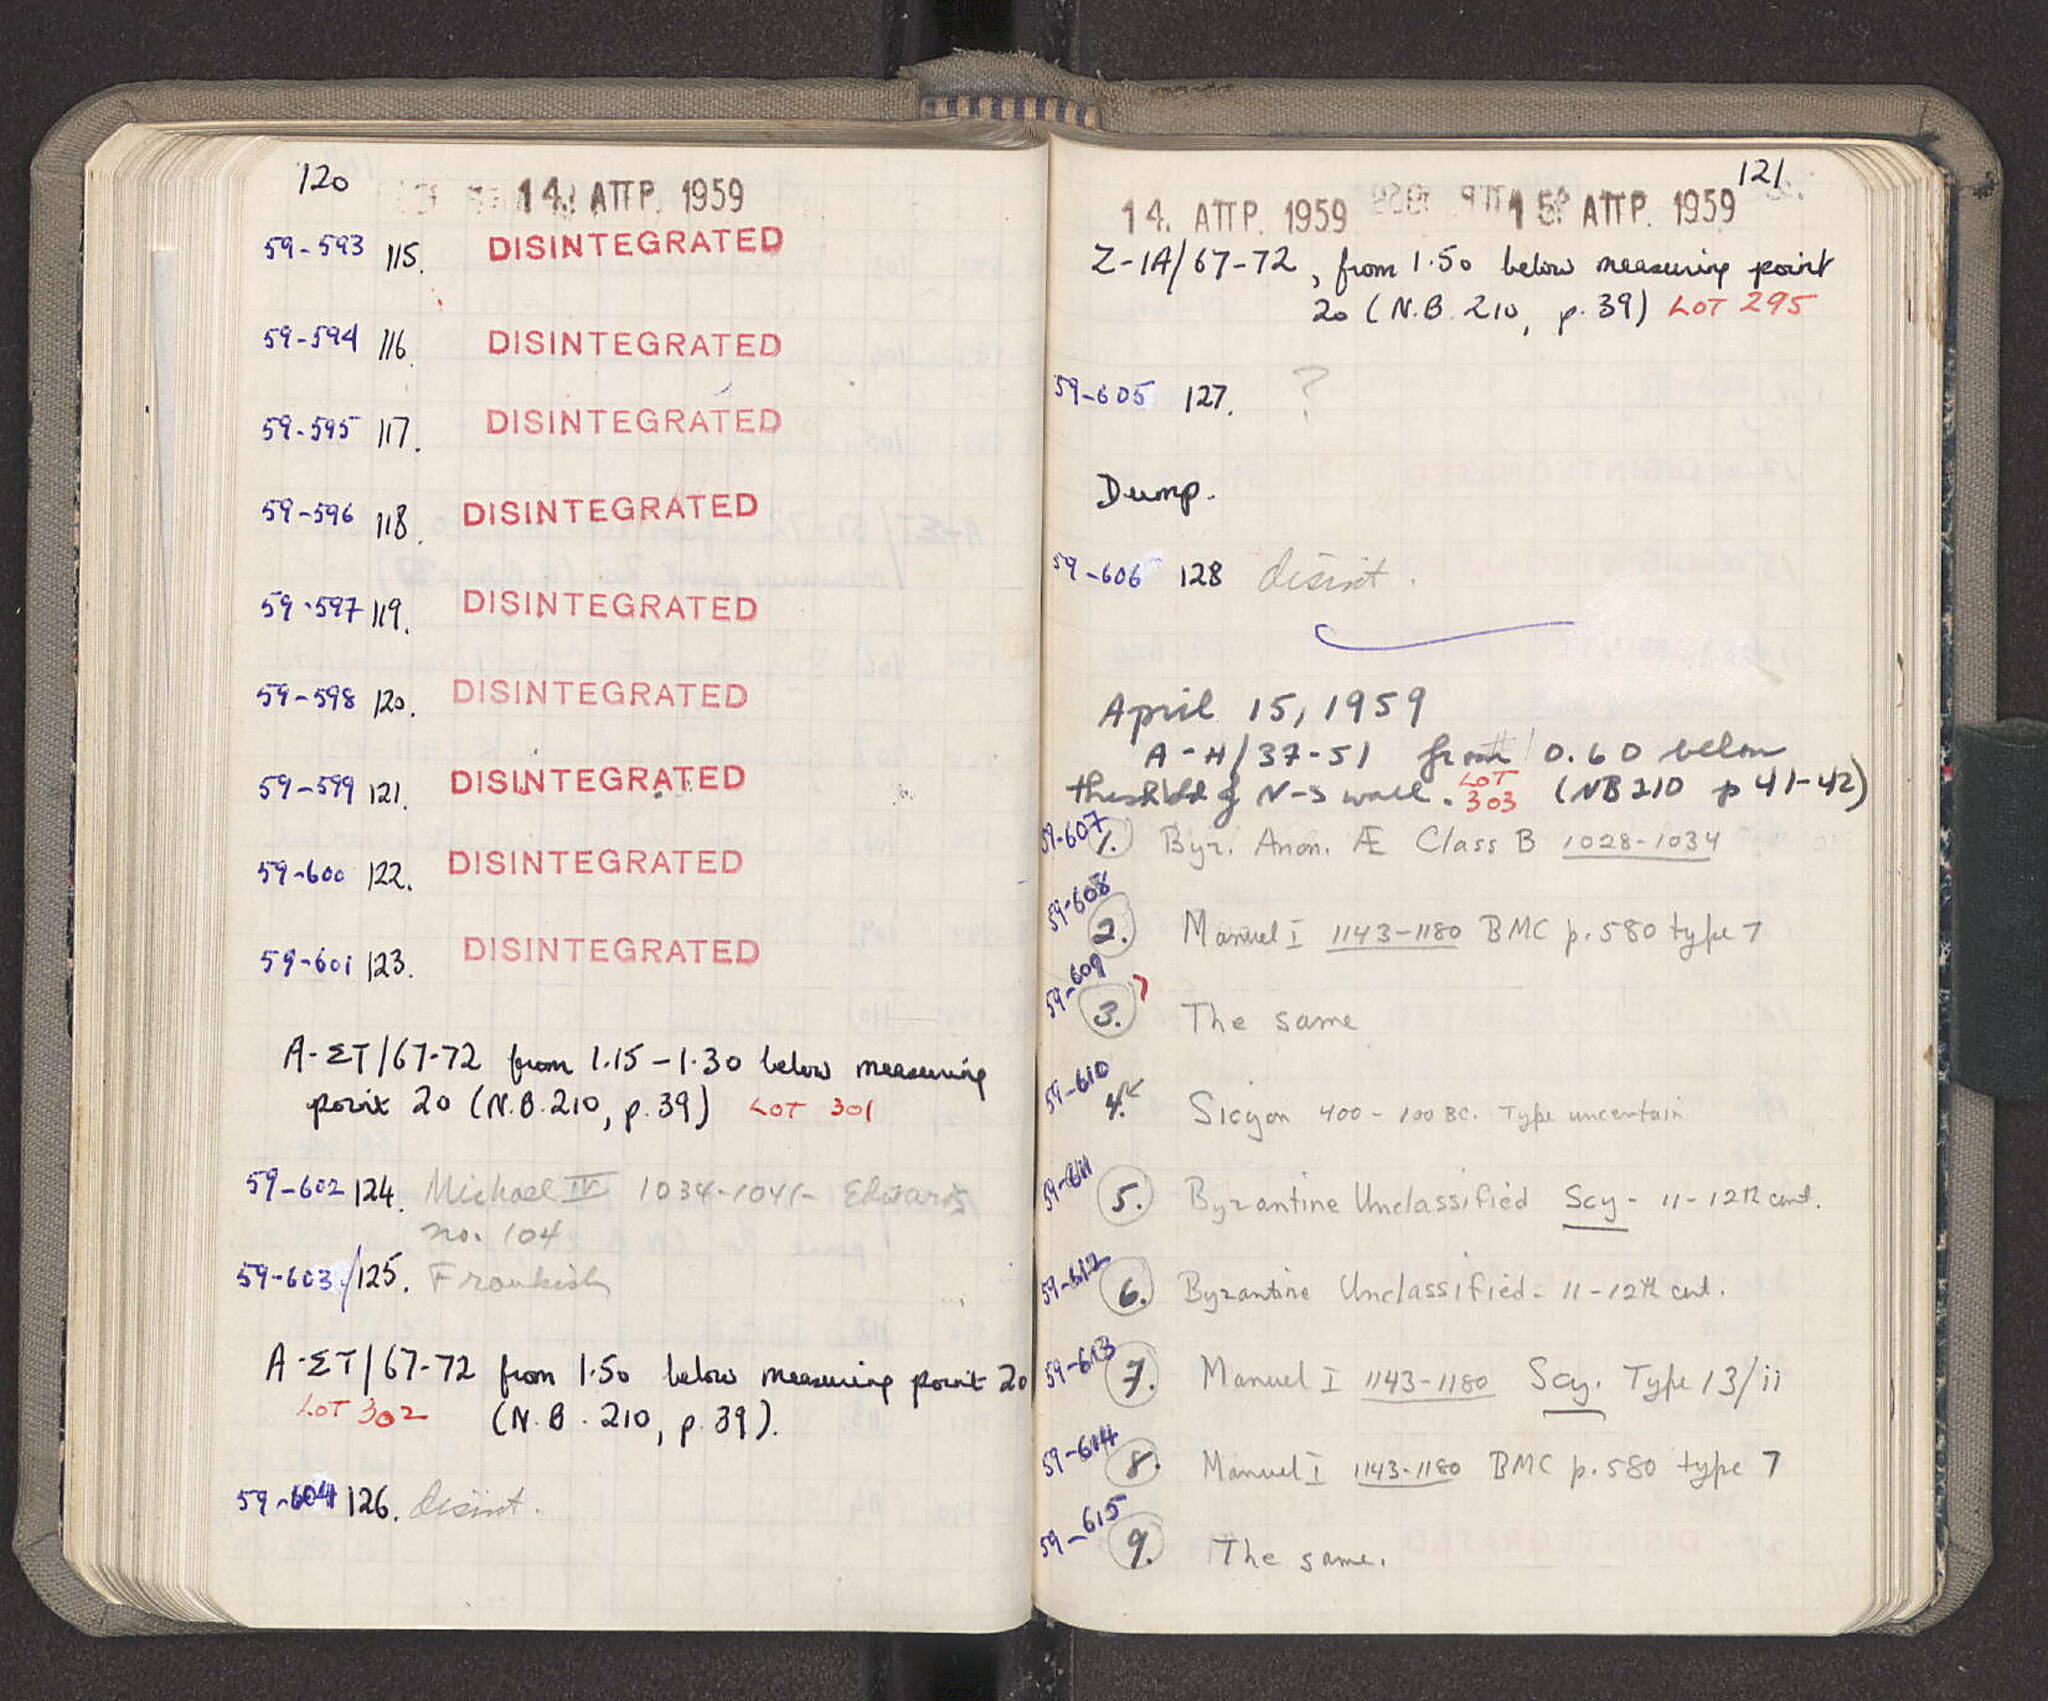 120
14. ΑΠΡ. 1959
59-593 115. DISINTEGRATED
59-594 116. DISINTEGRATED
59-595 117. DISINTEGRATED
59-596 118. DISINTEGRATED
59-597 119. DISINTEGRATED
59-598 120. DISINTEGRATED
59-599 121. DISINTEGRATED
59-600 122. DISINTEGRATED
59-601 123. DISINTEGRATED
A-ΣΤ/67-72 from 1.15-1.30 below measuring
point 20 (N.B. 210, p. 39) LOT 301
59-602 124. Michael IV 1034-1041- Edwards
no. 104
59-603 125. Frankish
A-ΣΤ/67-72 from 1.50 below measuring point 20
LOT 302 (N.B. 210, p. 39).
59-604 126. disint.
121
14. ΑΠΡ. 1959 15 ΑΠΡ. 1959
Z-IA/67-72, from 1.50 below measuring point
20 (N.B. 210, p. 39) LOT 295
59-605 127. ?
Dump.
59-606 128 disint.
April 15, 1959
A-H/37-51 from 0.60 below
threshold of N-S wall. LOT 303 (NB 210 p 41-42)
59-607 1. Byz. Anon. Æ Class B 1028-1034
59-608 2. Manuel I 1143-1180 BMC p. 580 type 7
59-609 3. The same
59-610 4. Sicyon 400-100 BC. Type uncertain
59-611 5. Byzantine Unclassified Scy- 11-12th cent.
59-612 6. Byzantine Unclassified- 11-12th cent.
59-613 7. Manuel I 1143-1180 Scy. Type 13/ii
59-614 8. Manuel I 1143-1180 BMC p. 580 type 7
59-615 9. The same.